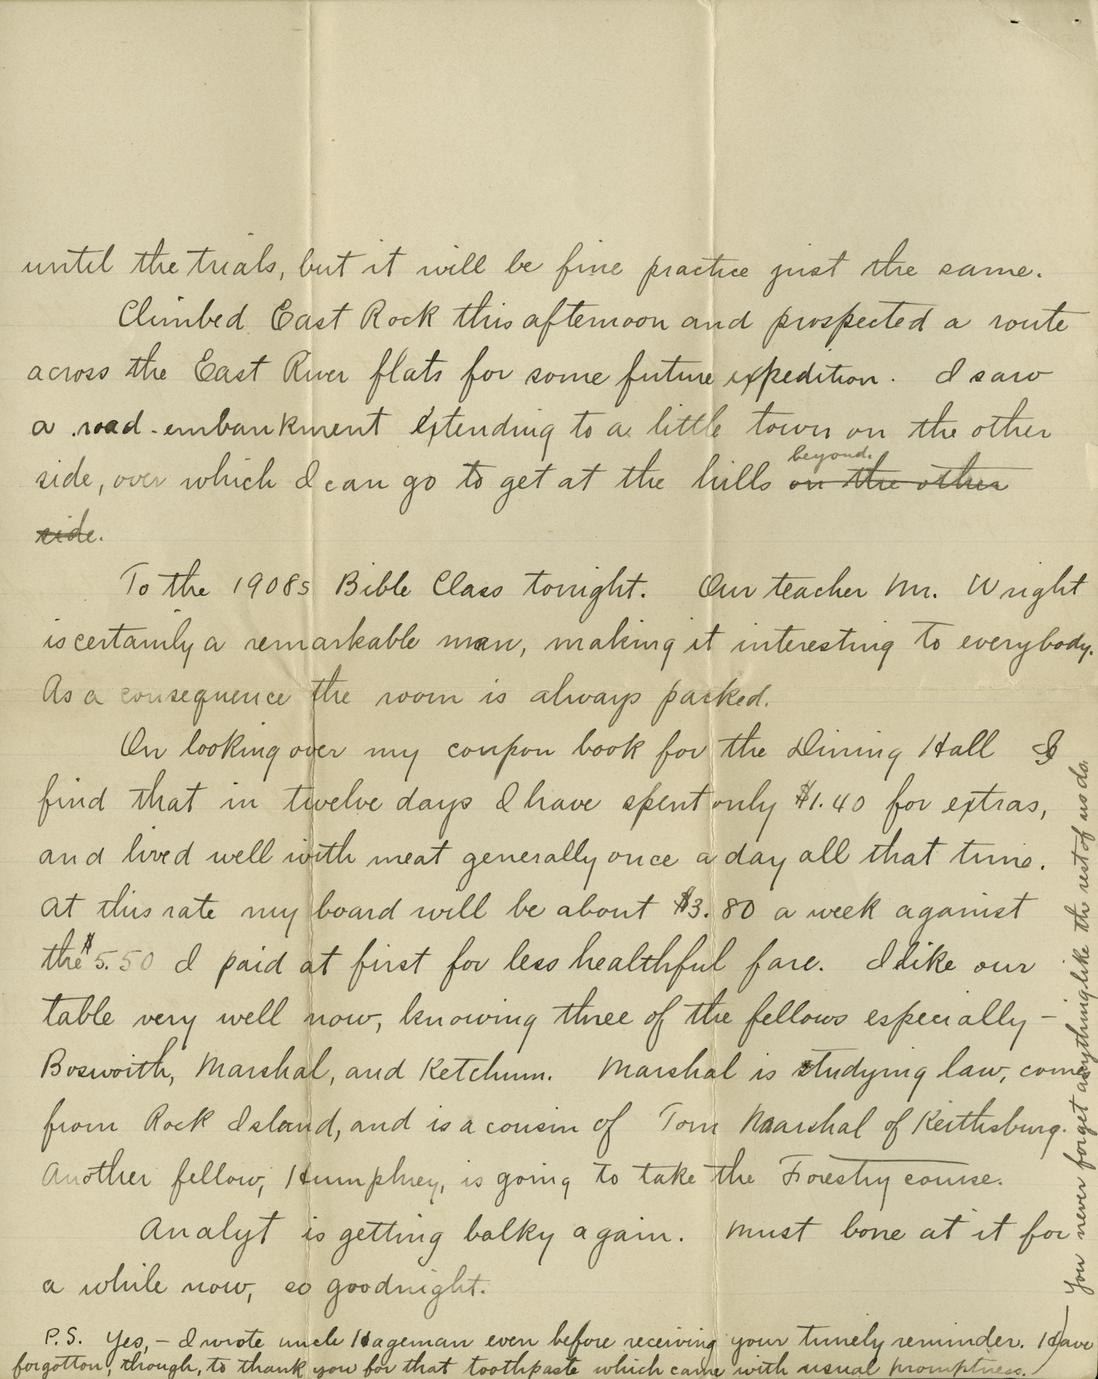 until the trials, but it will be fine practice just the same.
Climbed East Rock this afternoon and prospected a route
across the East River flats for some future expedition. I saw
a road-embankment extending to a little town on the other
side, over which I can go to get at the hills beyond. on the other
side.
To the 1908s Bible Class tonight. Our teacher Mr. Wright
is certainly a remarkable man, making it interesting to everybody.
As a consequence the room is always packed.
On looking over my coupon book for the Dining Hall I
find that in twelve days I have spent only $1.40 for extras,
and lived well with meat generally once a day all that time.
At this rate my board will be about $3.80 a week against
the $5.50 I paid at first for less healthful fare. I like our
table very well now, knowing three of the fellows especially –
Bosworth, Marshal, and Ketchum. Marshal is studying law, comes
from Rock Island, and is a cousin of Tom Marshal of Keithsburg.
Another fellow, Humphrey, is going to take the Forestry course.
Analyt is getting balky again. Must bone at it for
a while now, so goodnight.
P.S. Yes, – I wrote uncle Hageman even before receiving your timely reminder. Have
forgotton, though, to thank you for that toothpaste which came with usual promptness.
You never forget anything like the rest of us do.